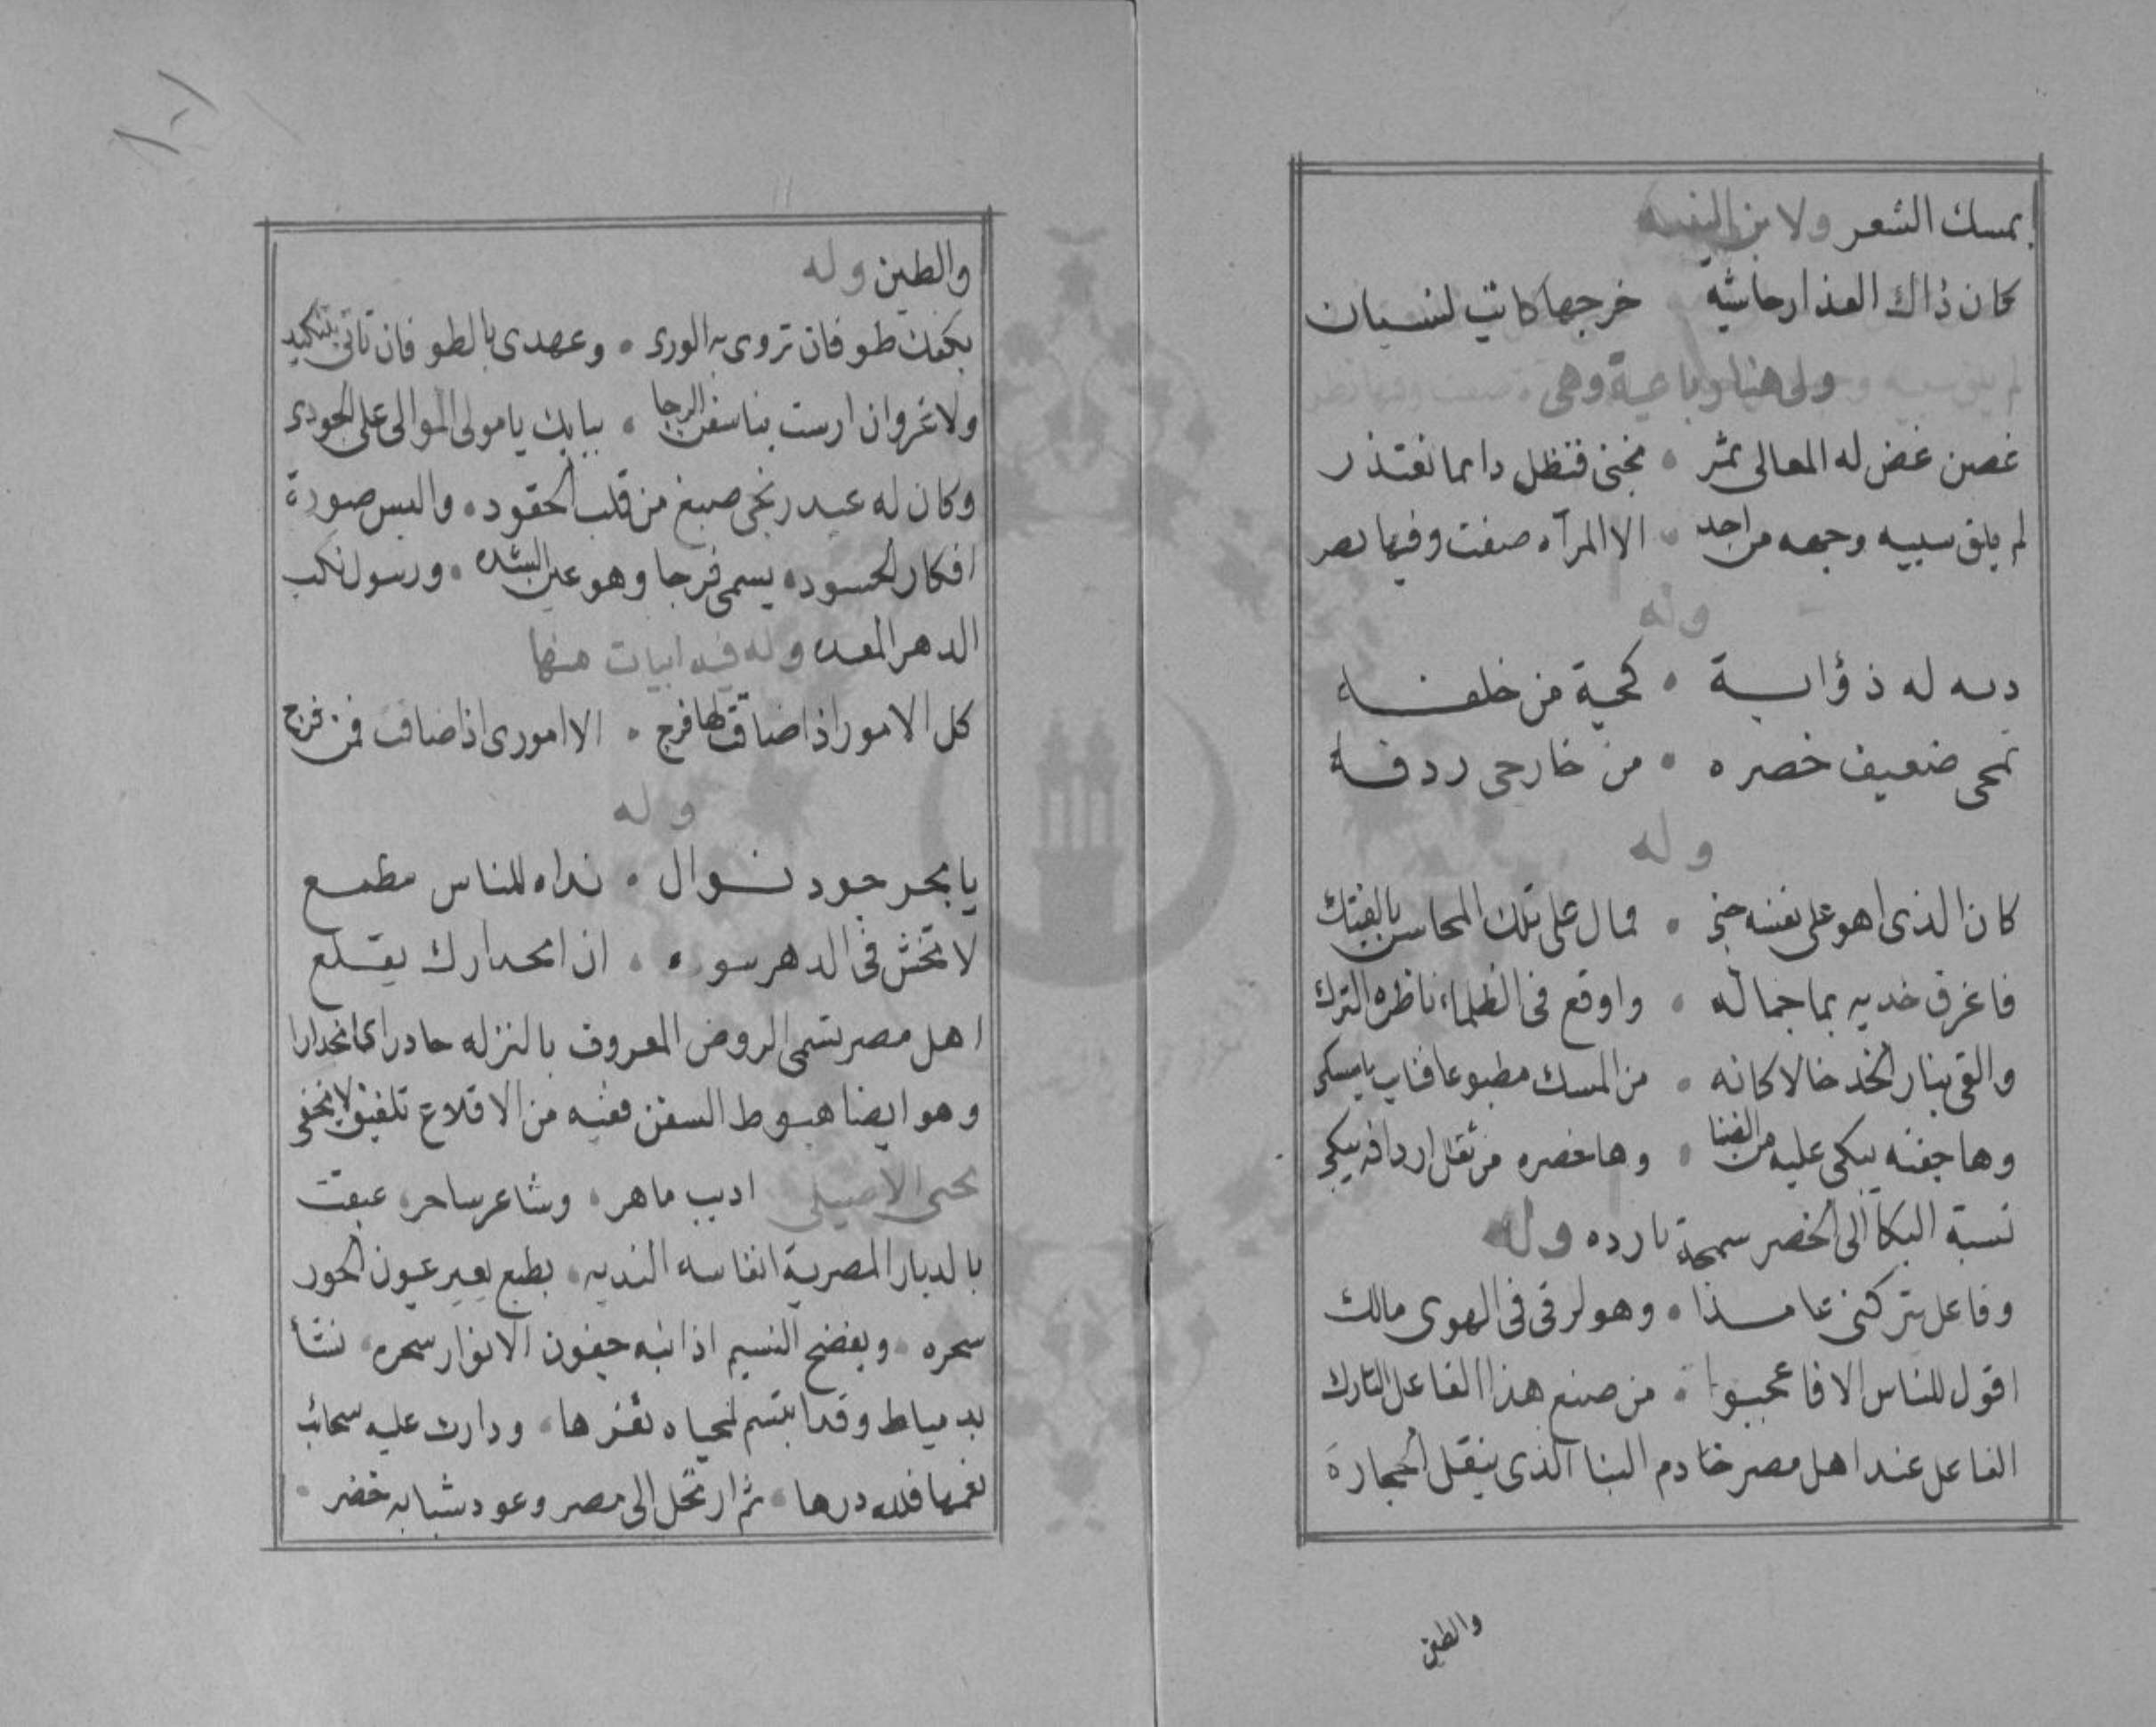 بمسك الشعر ولابن النبيه
كان ذاك العذار حاشية خرجها كاتب لنسيان
ولى هنا رباعية وهى
غصن غض له المعالى ثمر • نجنى فتظل دايما نعتذر
لم يلق سبيه وجهه من احد • الا المرآه صفت وفيها بصر
وله
بدىه له ذؤابة • كحية من خلفه
تحمى ضعيف خصره • من خارجى ردفه
وله
كان الذى اهو على نفسه جنى • فمال على تلك المحاسن بالفتك
فاغرق خديه بما جماله • واوقع فى الظلماء ناظره التركى
والقى بنار الخد خالا كانه • من المسك مطبوعا فناب يا مسكى
وها جفنه يبكى عليه من الضنا • وها خصره من ثقل اردافه يبكى
نسبة البكا الى الخصر سمجة بارده وله
وفاعل يتركنى عامدا • وهو لرقى فى الهوى مالك
اقول للناس الا فاعجبوا • من صنع هذا الفاعل التارك
الفاعل عند اهل مصر خادم البنا الذى ينقل الحجارة
والطين
والطين وله
بكفك طوفان تروى به الورى • وعهدى بالطوفان تاتى بتنكيد
ولا غروان ارست بنا سفن الرجا • ببابك يا مولى الموالى على الجودى
وكان له عبد زنجى صبغ من قلب الحقود • والبس صورة
افكار الحسود • يسمى فرجا وهو عين الشده • ورسول نكب
الدهر المعده وله فيه ابيات منها
كل الامور اذا ضاقت لها فرج • الا امورى اذا ضاقت فمن فرج
وله
يا بحر جود نوال • نداه للناس مطمع
لا تخش فى الدهر سوء • ان انحدارك يقلع
اهل مصر تسمى الروض المعروف بالنزله حادرا كانحدارا
وهو ايضا هبوط السفن ففيه من الاقلاع تلفيق لا يخفى
يحيى الاصيلى اديب ماهر • وشاعر ساحر • عبقت
بالديار المصرية انفاسه النديه • بطبع يعير عيون الحور
سحره • ويفضح النسيم اذا نبه جفون الانوار سحره • نشأ
بدمياط وقد ابتسم لمحياه ثغرها • ودارت عليه سحائب
نعمها فلله درها • ثم ارتحل الى مصر وعود شبابه خضر •